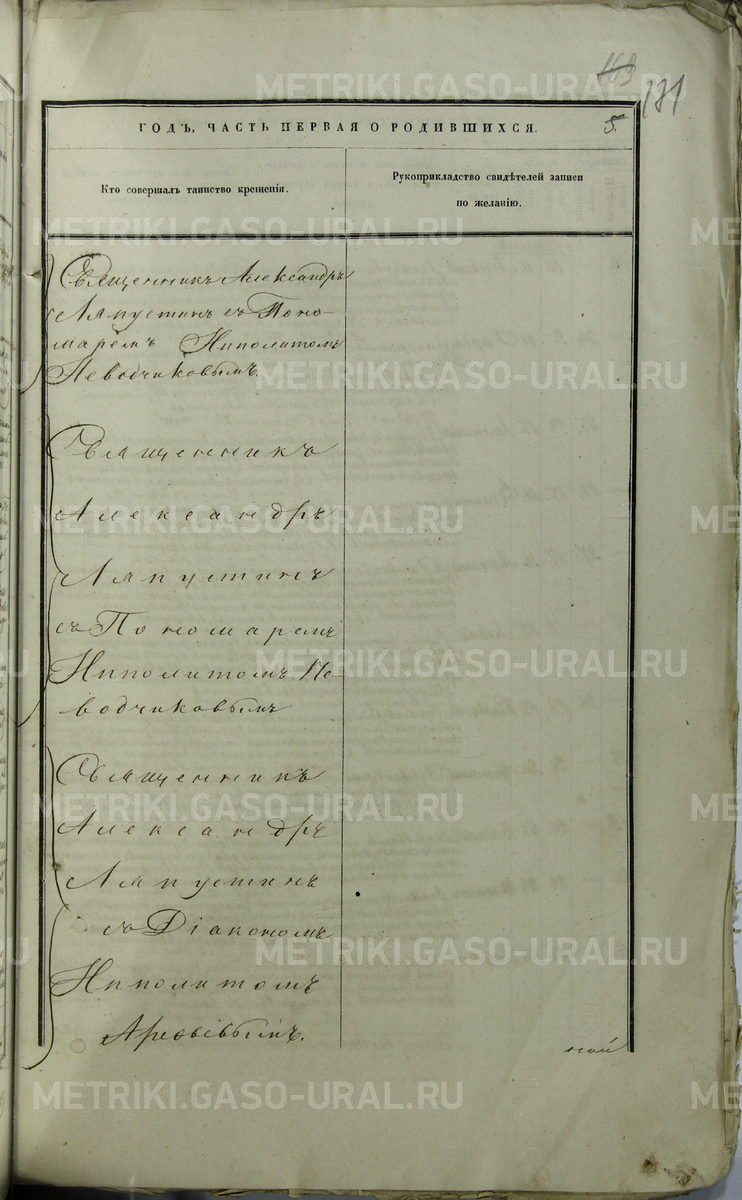 163
131
ГОДЪ, ЧАСТЬ ПЕРВАЯ О РОДИВШИХСЯ.
5.
Кто совершалъ таинство крещенія.
Рукоприкладство свидѣтелей записи
по желанію.
Священникъ Александръ
Ляпустинъ съ Поно-
маремъ Иполитомъ
Неводчиковымъ.
Священникъ
Александръ
Ляпустинъ
съ Пономаремъ
Иполитомъ Не
водчиковымъ
Священникъ
Александръ
Ляпустинъ
съ Діакономъ
Иполитомъ
METRIKI.GASO-URAL.RU